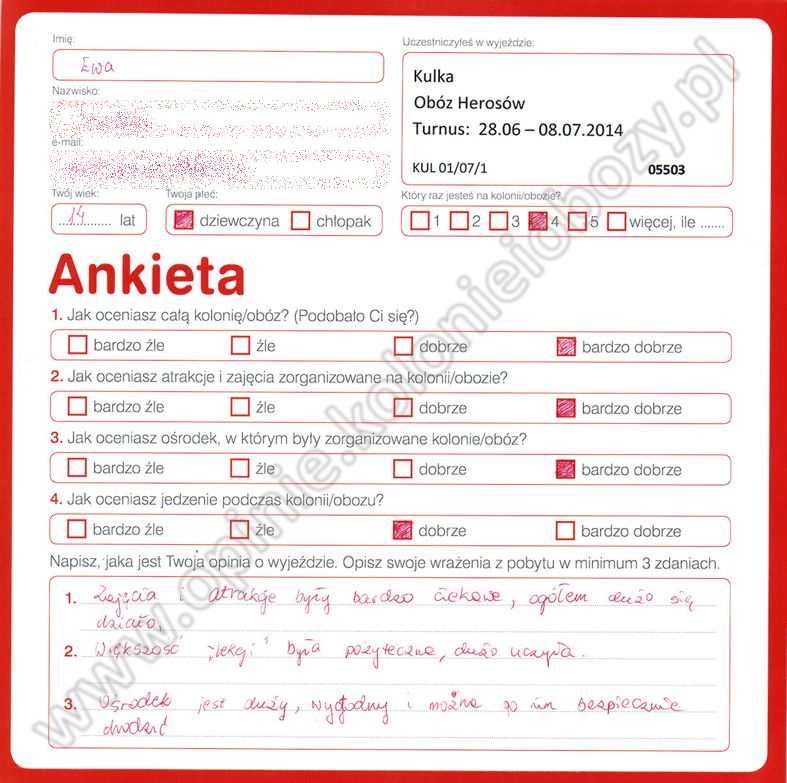 Imię:
Uczestniczyłeś w wyjeździe:
Ewa
Kulka
Obóz Herosów
Turnus: 28.06 – 08.07.2014
KUL 01/07/1 05503
Nazwisko:
e-mail:
Twój wiek: Twoja płeć: Który raz jesteś na kolonii/obozie?
14 lat dziewczyna chłopak 1 2 3 4 5 więcej, ile .......
Ankieta
1. Jak oceniasz całą kolonię/obóz? (Podobało Ci się?)
bardzo źle źle dobrze bardzo dobrze
2. Jak oceniasz atrakcje i zajęcia zorganizowane na kolonii/obozie?
bardzo źle źle dobrze bardzo dobrze
3. Jak oceniasz ośrodek, w którym były zorganizowane kolonie/obóz?
bardzo źle źle dobrze bardzo dobrze
4. Jak oceniasz jedzenie podczas kolonii/obozu?
bardzo źle źle dobrze bardzo dobrze
Napisz, jaka jest Twoja opinia o wyjeździe. Opisz swoje wrażenia z pobytu w minimum 3 zdaniach.
1. Zajęcia i atrakcje były bardzo ciekawe, ogółem dużo się
działo.
2. Większość "lekcji" była pożyteczna, dużo uczyła.
3. Ośrodek jest duży, wygodny i można po nim bezpiecznie
chodzić
www.opinie.kolonieiobozy.pl